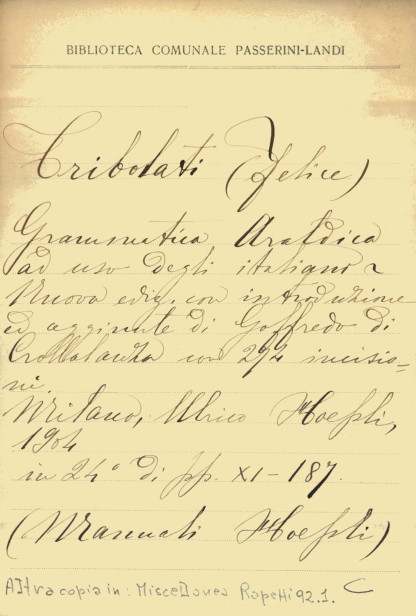 BIBLIOTECA COMUNALE PASSERINI-LANDI
Tribolati (Felice)
Grammatica Araldica
ad uso degli italiani
Nuova ediz. con introduzione
ed aggiunte di Goffredo di
Crollalanza con 274 incisio=
ni.
Milano, Ulrico Hoepli,
1904
in 24° di pp. XI-187.
(Manuali Hoepli)
Altra copia in: Miscellanea Rapetti 92.1.